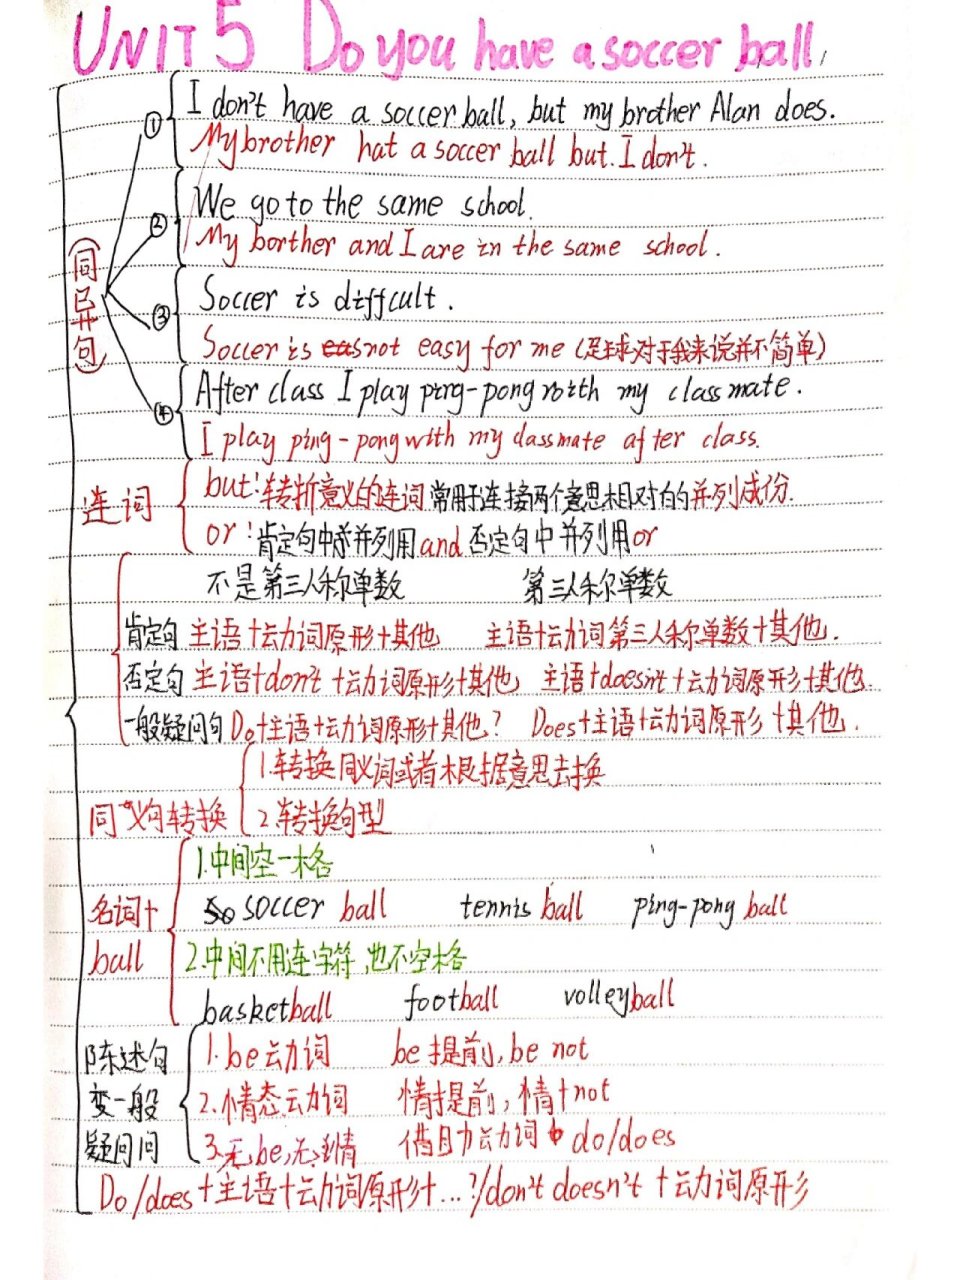 UNIT 5 Do you have a soccer ball
① I don't have a soccer ball, but my brother Alan does.
My brother hat a soccer ball but. I don't.
② We go to the same school.
My borther and I are in the same school.
③ Soccer is diffcult.
Soccer is not easy for me (足球对于我来说并不简单)
④ After class I play ping-pong with my classmate.
I play ping-pong with my classmate after class.
连词
but:转折意义的连词 常用于连接两个意思相对的的并列成份.
or:肯定句中并列用and 否定句中并列用or
不是第三人称单数 第三人称单数
肯定句 主语+动词原形+其他 主语+动词第三人称单数+其他.
否定句 主语+don't+动词原形+其他 主语+doesn't+动词原形+其他.
一般疑问句 Do+主语+动词原形+其他? Does+主语+动词原形+其他.
1.转换同义词或者根据意思去换
同义句转换 2.转换句型
1.中间空一格
名词+ soccer ball tennis ball ping-pong ball
ball 2.中间不用连字符,也不空格
basketball football volleyball
陈述句 1.be动词 be提前,be not
变一般 2.情态动词 情提前,情+not
疑问问 3.无be,无情 借助动词 do/does
Do/does+主语+动词原形+...?/don't doesn't+动词原形